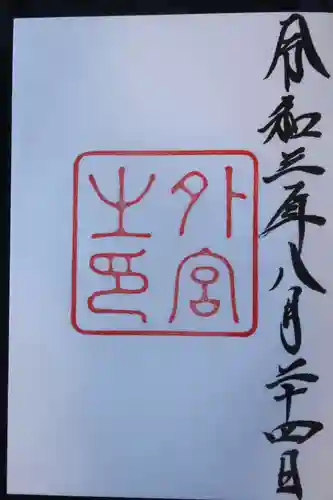 令和三年八月二十四日
外宮
之印